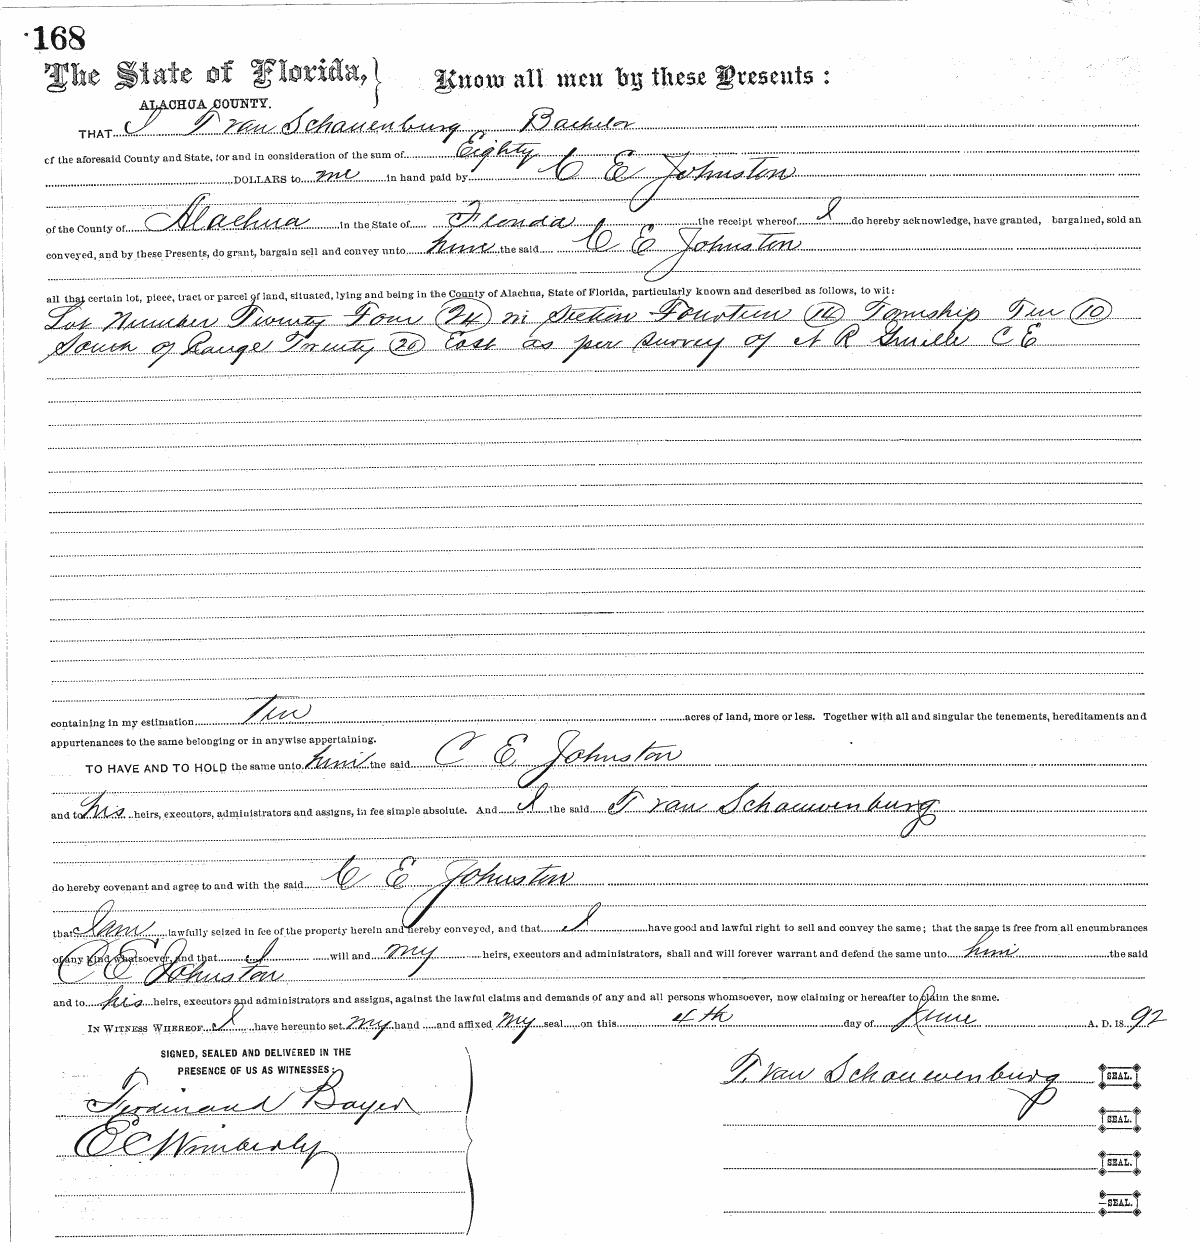 168
The State of Florida, Know all men by these Presents :
ALACHUA COUNTY.
THAT I T van Schauenburg Bachelor
of the aforesaid County and State, for and in consideration of the sum of Eighty
DOLLARS to me in hand paid by C E Johnston
of the County of Alachua in the State of Florida the receipt whereof I do hereby acknowledge, have granted, bargained, sold an
conveyed, and by these Presents, do grant, bargain sell and convey unto him the said C E Johnston
all that certain lot, piece, tract or parcel of land, situated, lying and being in the County of Alachua, State of Florida, particularly known and described as follows, to wit:
Lot Number Twenty Four (24) in Section Fourteen (14) Township Ten (10)
South of Range Twenty (20) East as per survey of N R C E
containing in my estimation Ten acres of land, more or less. Together with all and singular the tenements, hereditaments and
appurtenances to the same belonging or in anywise appertaining.
TO HAVE AND TO HOLD the same unto him the said C E Johnston
and to his heirs, executors, administrators and assigns, in fee simple absolute. And I the said T van Schauwenburg
do hereby covenant and agree to and with the said C E Johnston
that I am lawfully seized in fee of the property herein and hereby conveyed, and that I have good and lawful right to sell and convey the same; that the same is free from all encumbrances
of any kind whatsoever, and that I will and my heirs, executors and administrators, shall and will forever warrant and defend the same unto him the said
C E Johnston
and to his heirs, executors and administrators and assigns, against the lawful claims and demands of any and all persons whomsoever, now claiming or hereafter to claim the same.
IN WITNESS WHEREOF, I have hereunto set my hand and affixed my seal on this 4th day of June A. D. 1892
SIGNED, SEALED AND DELIVERED IN THE
PRESENCE OF US AS WITNESSES:
T. van Schauwenburg SEAL.
Ferdinand Bayer
SEAL.
E C Wimberly
SEAL.
SEAL.